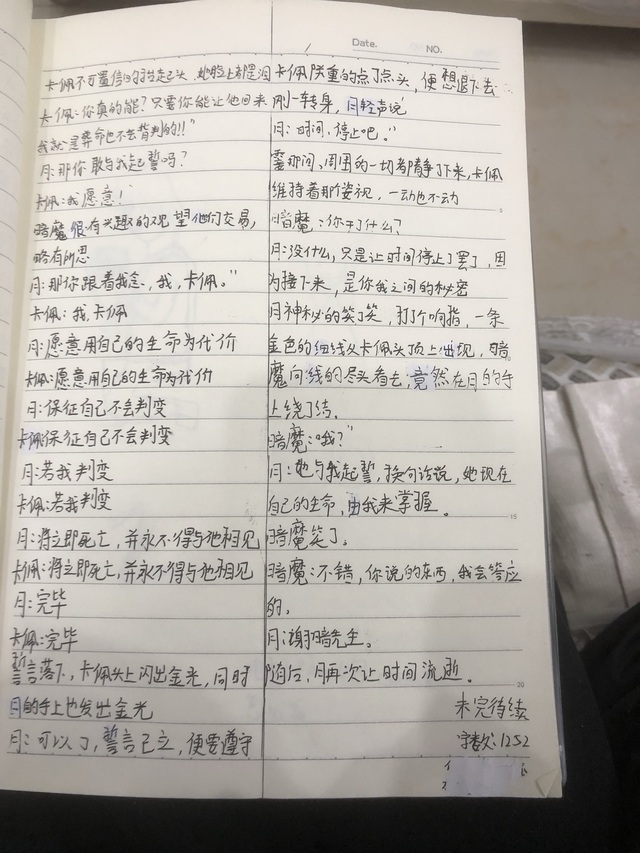 Date.
NO.
卡佩不可置信的抬起头，她脸上都是泪
卡佩:你真的能？只要你能让他回来
我就是弄命也不会背判的!!"
月:那你敢与我起誓吗？
卡佩:我愿意！
暗魔很有兴趣的观望他们交易，
略有所思
月:那你跟着我念，我，卡佩。"
卡佩：我，卡佩
月:愿意用自己的生命为代价
卡佩:愿意用自己的生命为代价
月:保征自己不会判变
卡佩:保征自己不会判变
月:若我判变
卡佩:若我判变
月:将立即死亡，并永不得与他相见
卡佩:将立即死亡，并永不得与他相见
月:完毕
卡佩:完毕
誓言落下，卡佩头上闪出金光，同时
月的手上也发出金光
月:可以了，誓言已立，便要遵守
卡佩严重的点了点头，便想退下去
刚一转身，月轻声说
月:时间，停止吧。"
霎那间，周围的一切都静了下来，卡佩
维持着那个姿视，一动也不动
暗魔:你干了什么？
月:没什么，只是让时间停止了罢了，因
为接下来，是你我之间的秘密
月神秘的笑了笑，打了个响指，一条
金色的细线从卡佩头顶上出现，暗
魔向线的尽头看去，竟然在月的手
上绕了结。
暗魔:哦？"
月:她与我起誓，换句话说，她现在
自己的生命，由我来掌握。
暗魔笑了。
暗魔:不错，你说的东西，我会答应
的。
月:谢暗先生。
随后，月再次让时间流逝。
未完待续
字数:1252